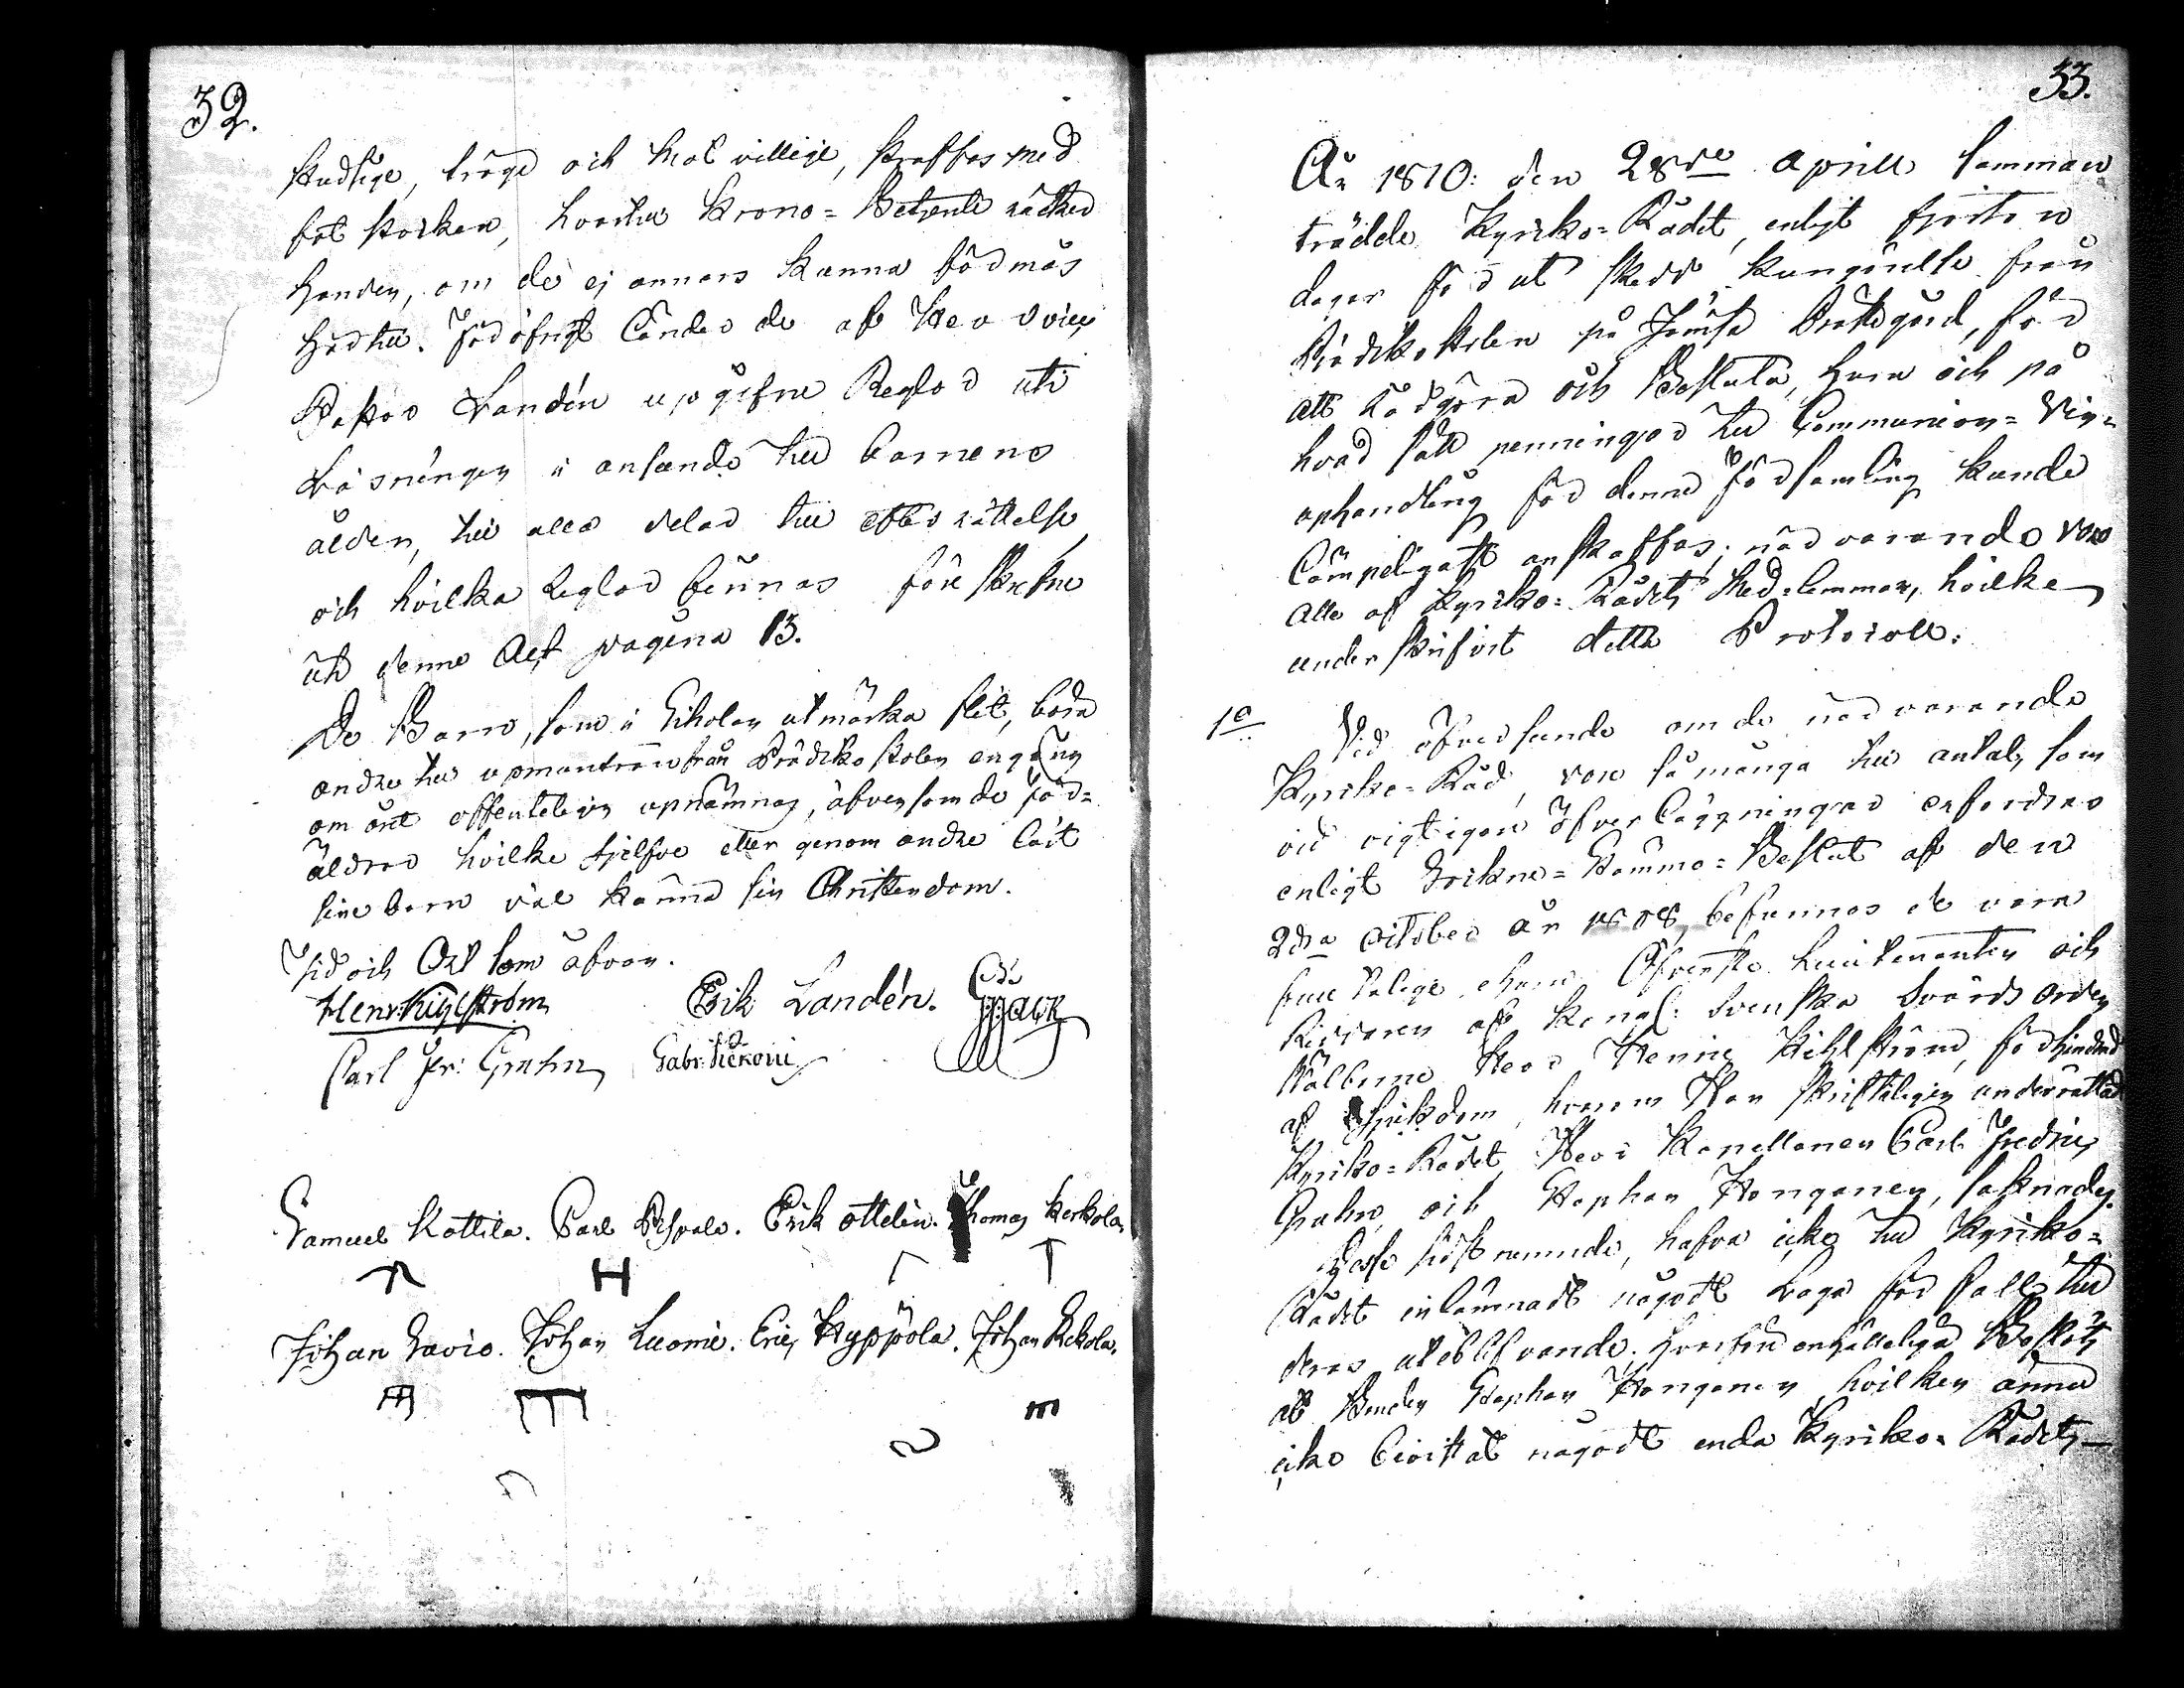 32.
studsige, tröge och mot villige, straffas med
fot stocken, hvartill Krono-Betjente räcker
handen, om de ej annars kunna förmås
härtill. För öfrigt lände de af Herr Vice
Pastor Landén uppgifne Reglor uti
Läsningen i anseende till barnens
ålder, till allas delar till efterrättelse,
och hvilka Reglor finnas föreskrifne
uti denne Act pagina 13.
De Barn, som i Scholan utmärka flit, böra
andre till upmuntran från Prädikostolen en gång
om året offenteligen upnämnas, äfvensom de för-
äldrar hvilke sjelfve eller genom andre lärt
sine barn väl känna sin Christendom.
Tid och Ort som åfvan.
Henr: Kihlström Erik Landén.
Carl Fr: Grahn Gabr:
Samuel Kottila. Carl Erik Ottelin. Thomas Kerkola
H T
Johan Johan Luomi. Eric Hyppölä. Johan Rekola.
33.
År 1810: den 28de Aprill samman
trädde Kyrko-Rådet, enligt fjorton
dagar förut skedd kungörelse från
Prädikostolen på Jämsä Prästegård, för
att rådgöra och Besluta, huru och på
hvad sätt penningar till Communion-Vin-
uphandling för denne Församling kunde
lämpeligast anskaffas; närvarande voro
alle af Kyrko-Rådets Ledamöter, hvilke
underskrifvit detta Protocoll.
1o Vid öfverseende om de närvarande
Kyrko-Råd, voro så många till antal, som
vid vigtigare öfverläggningar erfordras
enligt Sockne-Stämmo-Beslut af den
2dra October år 1808, befunnos de vara
fulltalige ehuru Öfverste Lieutenanten och
Riddaren af Kongl: Svenska Svärds Orden
Välborne Herr Henric Kihlström, förhindrad
af Sjukdom, hvarom Han skrifteligen underrättat
Kyrko-Rådet, Herr Kapellanen Carl Fredric
Grahn och Staphan Honganen, saknades.
Desse sistnemnde, hafva icke till Kyrko-
Rådet inlämnadt någodt Laga förfall till
deras uteblifvande. Hvarföre enhälleligen Beslöts
at Bonden Staphan Honganen hvilken ännu
icke bevistat någodt enda Kyrko-Rådets